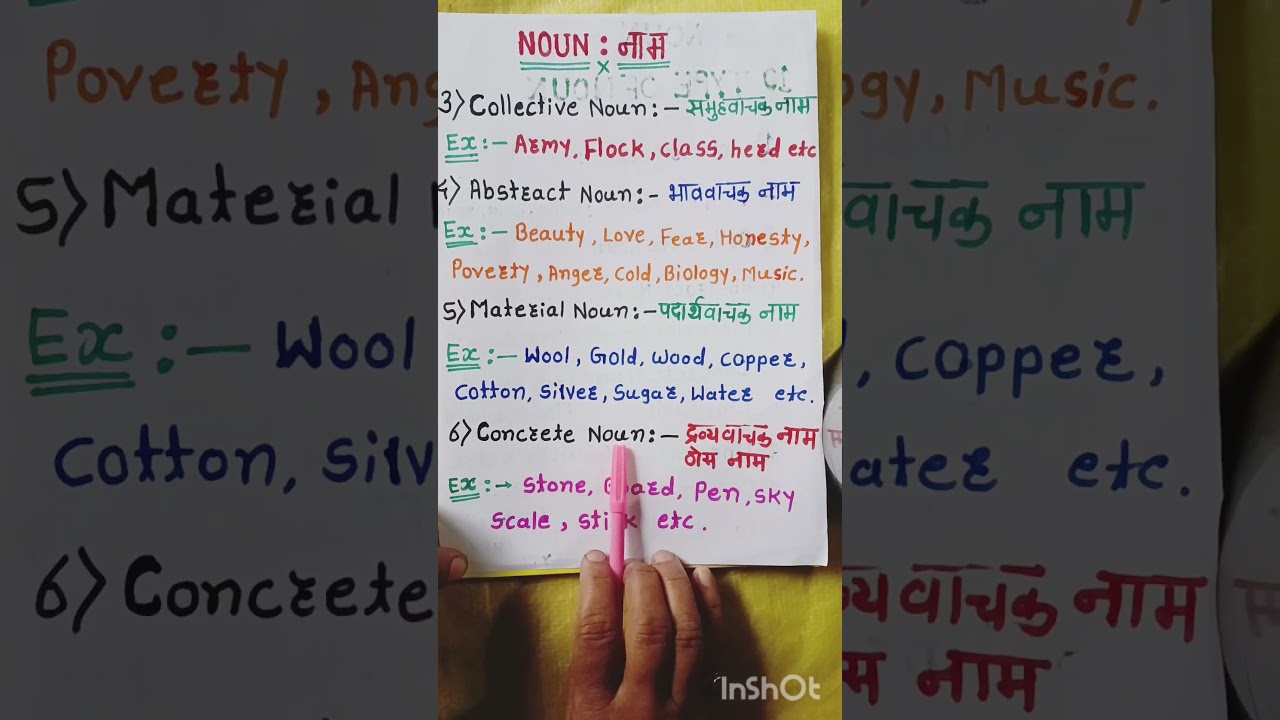 NOUN : नाम
3) Collective Noun :- समुहवाचक नाम
Ex :- Army, Flock, class, herd etc
4) Abstract Noun :- भाववाचक नाम
Ex :- Beauty, Love, Fear, Honesty,
Poverty, Anger, Cold, Biology, Music.
5) Material Noun :- पदार्थवाचक नाम
Ex :- Wool, Gold, Wood, Copper,
Cotton, Silver, Sugar, Water etc.
6) Concrete Noun :- द्रव्यवाचक नाम
ठोस नाम
Ex :- Stone, Pen, Sky
Scale, etc.
InShOt